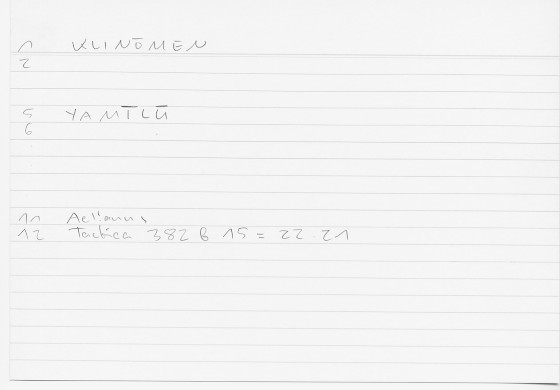 1 KLINŌMEN
2
5 YAMĪLŪ
6
11 Aelianus
12 Tactica 382 b 15 = 22.21